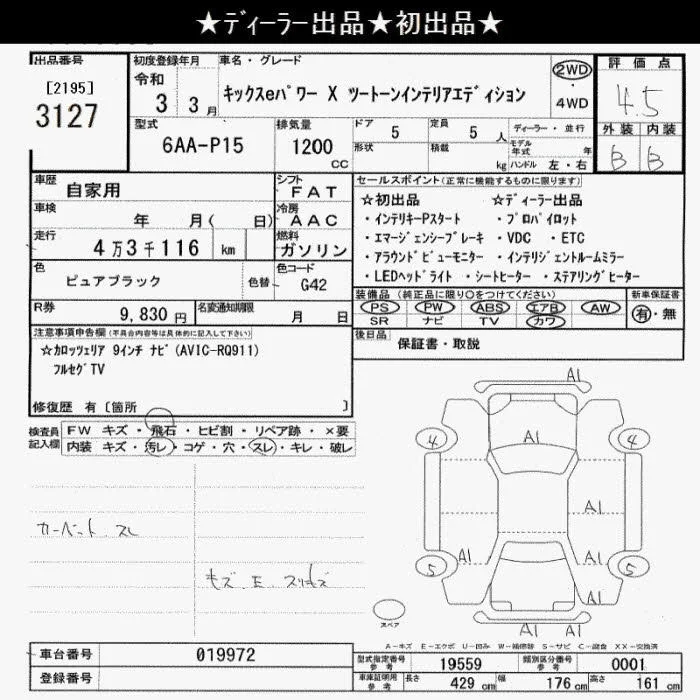 ★ディーラー出品★初出品★
出品番号
[2195]
3127
初度登録年月
令和
3 3月
車名・グレード
キックスeパワー X ツートーンインテリアエディション
2WD
・
4WD
評価点
4.5
外装 内装
B B
型式
6AA-P15
排気量
1200
cc
ドア 5
形状
定員 5 人
積載 kg
ディーラー・並行
モデル年式 年
ハンドル 左・右
車歴 自家用
車検 年 月( 日)
走行 4万3千116 km
シフト FAT
冷房 AAC
燃料 ガソリン
色 ピュアブラック
色替
色コード
G42
R券 9,830 円
名変通知期限
月 日
セールスポイント(正常に機能するものに限ります)
☆初出品 ☆ディーラー出品
・インテリキーPスタート ・プロパイロット
・エマージェンシーブレーキ ・VDC ・ETC
・アラウンドビューモニター ・インテリジェントルームミラー
・LEDヘッドライト ・シートヒーター ・ステアリングヒーター
装備品(純正品に限り○をつけてください)
PS PW ABS エアB AW
SR ナビ TV カワ
新車保証書
有・無
後日品 保証書・取説
注意事項申告欄(不具合内容等は具体的に記入して下さい)
☆カロッツェリア 9インチ ナビ(AVIC-RQ911)
フルセグTV
修復歴 有〔箇所 〕
検査員
記入欄
FW キズ・飛石・ヒビ割・リペア跡・×要
内装 キズ・汚レ・コゲ・穴・スレ・キレ・破レ
カーペット スレ
キズ E スリキズ
A1
4 A1 4
A1
A1 A1
5 5
A1 A1
スペア
A-キズ E-エクボ U-凹み W-補修跡 S-サビ C-腐食 XX-交換済
車台番号 019972
登録番号
型式指定番号
参考
19559
類別区分番号
参考
0001
車庫証明用
参考
長さ 429 cm 幅 176 cm 高さ 161 cm